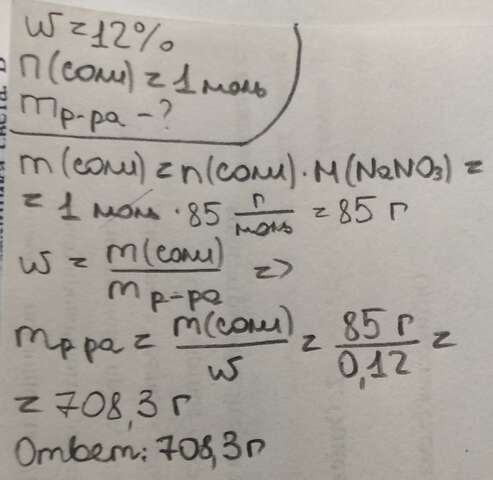 W = 12%
n(соли) = 1 моль
mр-ра - ?
m(соли) = n(соли) · M(NaNO₃) =
= 1 моль · 85 г/моль = 85 г
W = m(соли)/mр-ра =>
mр-ра = m(соли)/W = 85 г/0,12 =
= 708,3 г
Ответ: 708,3г